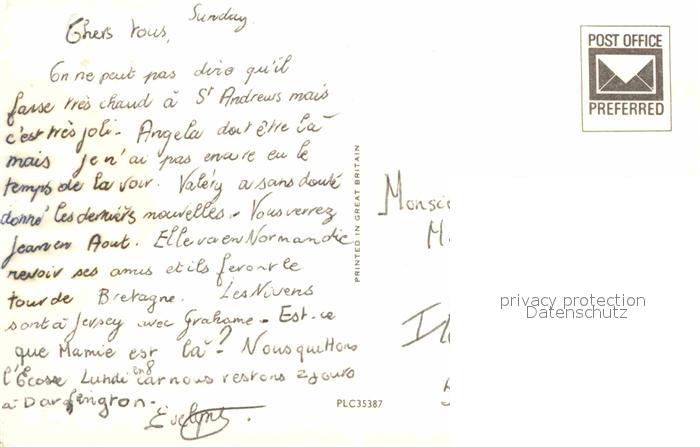 Sunday
Chers Vous,
On ne peut pas dire qu'il
fasse très chaud à St Andrews mais
c'est très joli - Angela doit être là
mais je n'ai pas encore eu le
temps de la voir. Valéry a sans doute
donné les derniers nouvelles - Vous verrez
Jean en Aout. Elle va en Normandie
revoir ses amis et ils feront le
tour de Bretagne. Les Nivens
sont à Jersey avec Grahame - Est-ce
que Mamie est là? Nous quittons
l'Ecosse Lundi en 8 car nous restons 2 jours
à Darlington -
Evelyne
PLC35387
PRINTED IN GREAT BRITAIN
POST OFFICE
PREFERRED
Monsie
M
privacy protection
Datenschutz